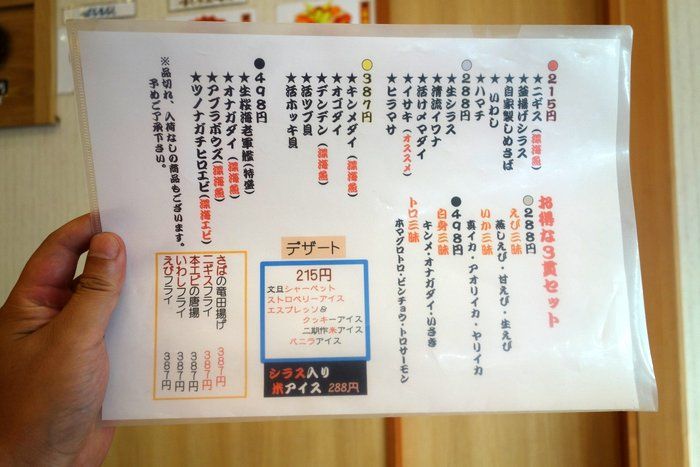 ●215円
★ニギス(深海魚)
★釜揚げシラス
★自家製しめさば
★いわし
★ハマチ
●288円
★生シラス
★清流イワナ
★活け〆マダイ
★イサキ(オススメ)
★ヒラマサ
●387円
★キンメダイ(深海魚)
★オゴダイ
★デンデン(深海魚)
★活ツブ貝
★活ホッキ貝
●498円
★生桜海老軍艦(特盛)
★オナガダイ(深海魚)
★アブラボウズ(深海魚)
★ツノナガチヒロエビ(深海エビ)
※品切れ、入荷なしの商品もございます。
予めご了承下さい。
お得な3貫セット
●288円
えび三昧
蒸しえび・甘えび・生えび
いか三昧
真イカ・アオリイカ・ヤリイカ
●498円
白身三昧
キンメ・オナガダイ・いさき
トロ三昧
ホマグロトロ・ビンチョウ・トロサーモン
デザート
215円
文旦シャーベット
ストロベリーアイス
エスプレッソ&
クッキーアイス
二期作米アイス
バニラアイス
シラス入り
米アイス 288円
さばの竜田揚げ 387円
ニギスフライ 387円
本エビの唐揚 387円
いわしフライ 387円
えびフライ 387円